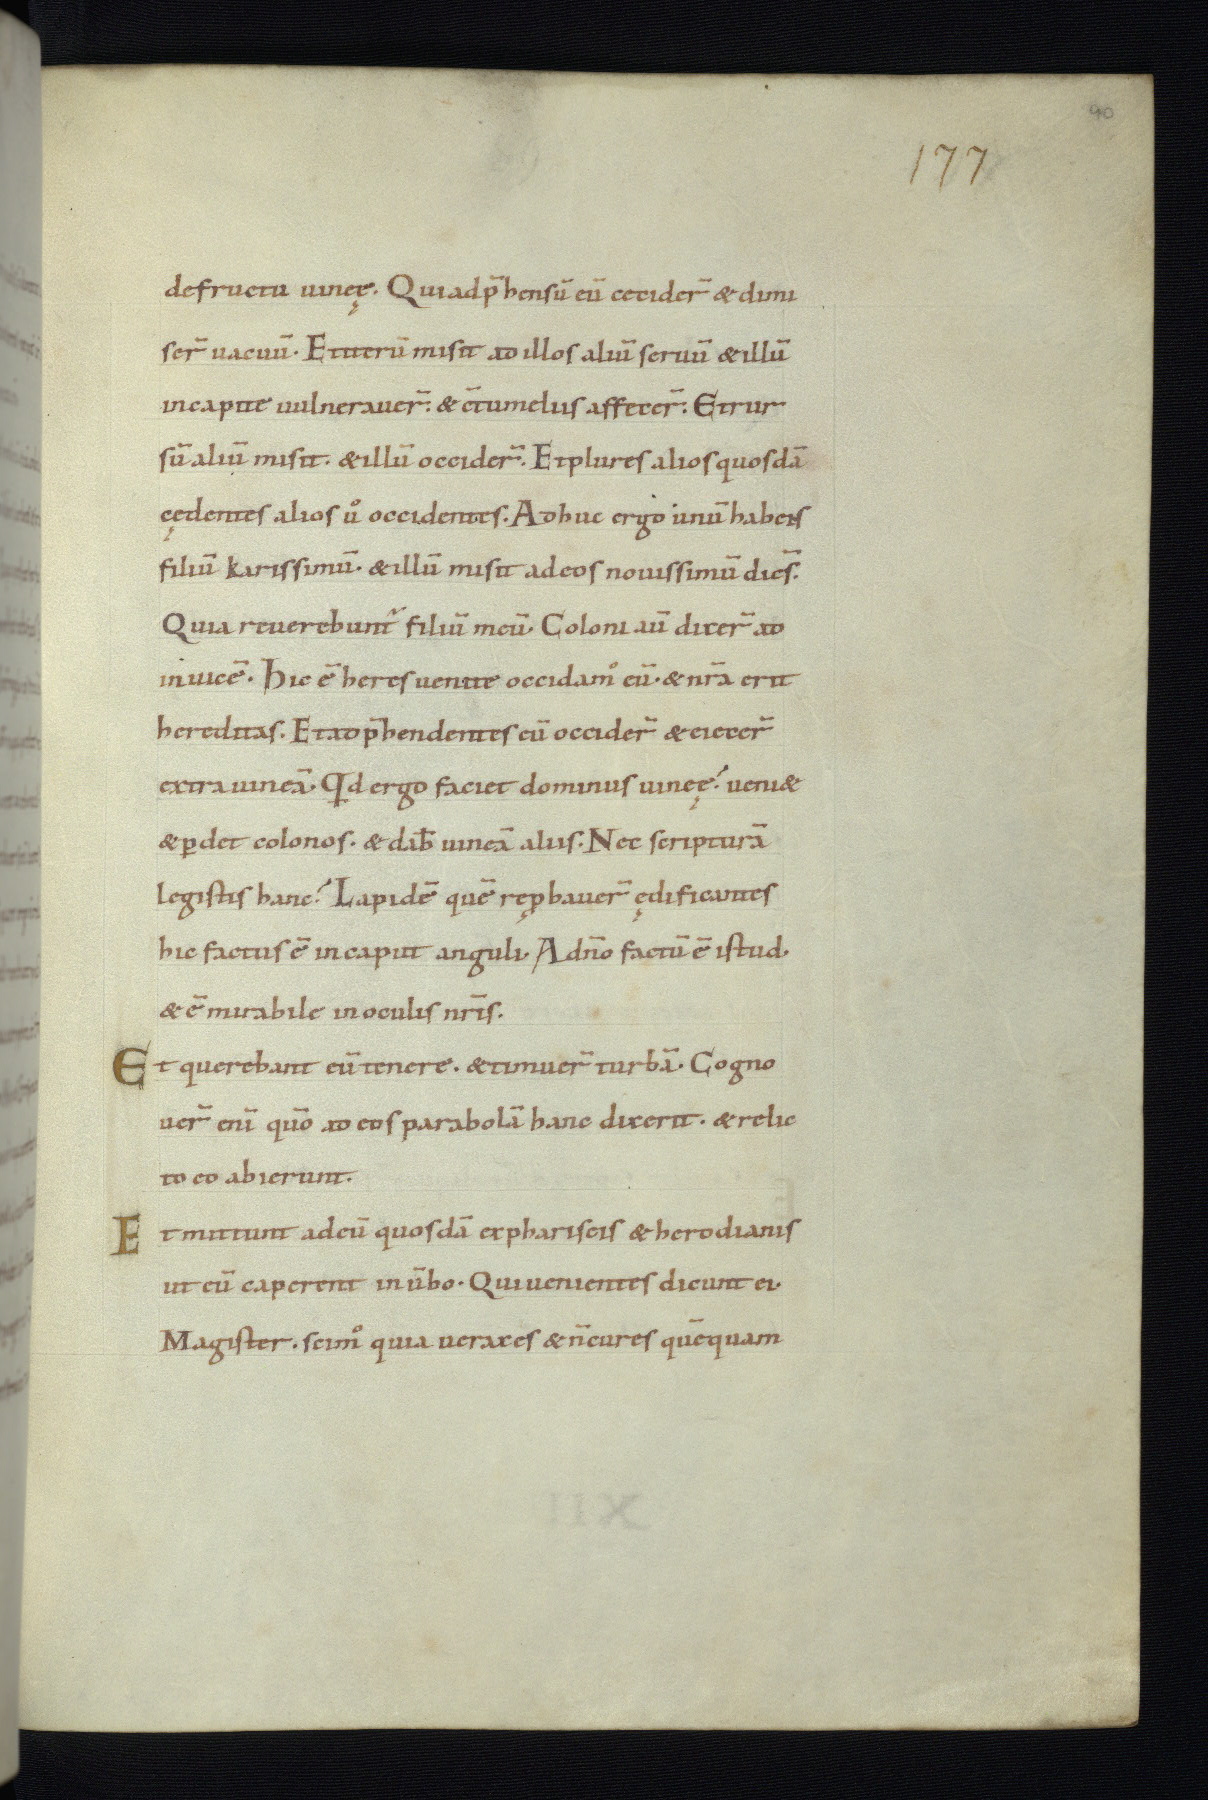 40
177
de fructu uineę. Qui adp̄hensū eū cecider̄ & dimi
ser̄ uacuū. Et iterū misit ad illos aliū seruū & illū
in capite uulnerauer̄. & c̄tumeliis affecer̄. Et rur
sū aliū misit. & illū occider̄. Et plures alios quosdā
cędentes alios ů occidentes. Adhuc ergo unū habens
filiū karissimū. & illū misit ad eos nouissimū dicēs.
Quia reuerebunt̄ filiū meū. Coloni aū dixer̄ ad
inuicē. Hic ē heres uenite occidam᷒ eū. & nr̄a erit
hereditas. Et adp̄hendentes eū occider̄ & eiecer̄
extra uineā. Qd ergo faciet dominus uineę? ueni&
& ꝑdet colonos. & dab̄ uineā aliis. Nec scripturā
legistis hanc? Lapidē quē ręꝓbauer̄ ędificantes
hic factus ē in caput anguli. A dn̄o factū ē istud.
& ē mirabile in oculis nr̄is.
Et querebant eū tenere. & timuer̄ turbā. Cogno
uer̄ enī qūo ad eos parabolā hanc dixerit. & relic
to eo abierunt.
Et mittunt ad eū quosdā ex phariseis & herodianis
ut eū caperent in ūbo. Qui uenientes dicunt ei.
Magister. scim᷒ quia uerax es & n̄ cures quēquam